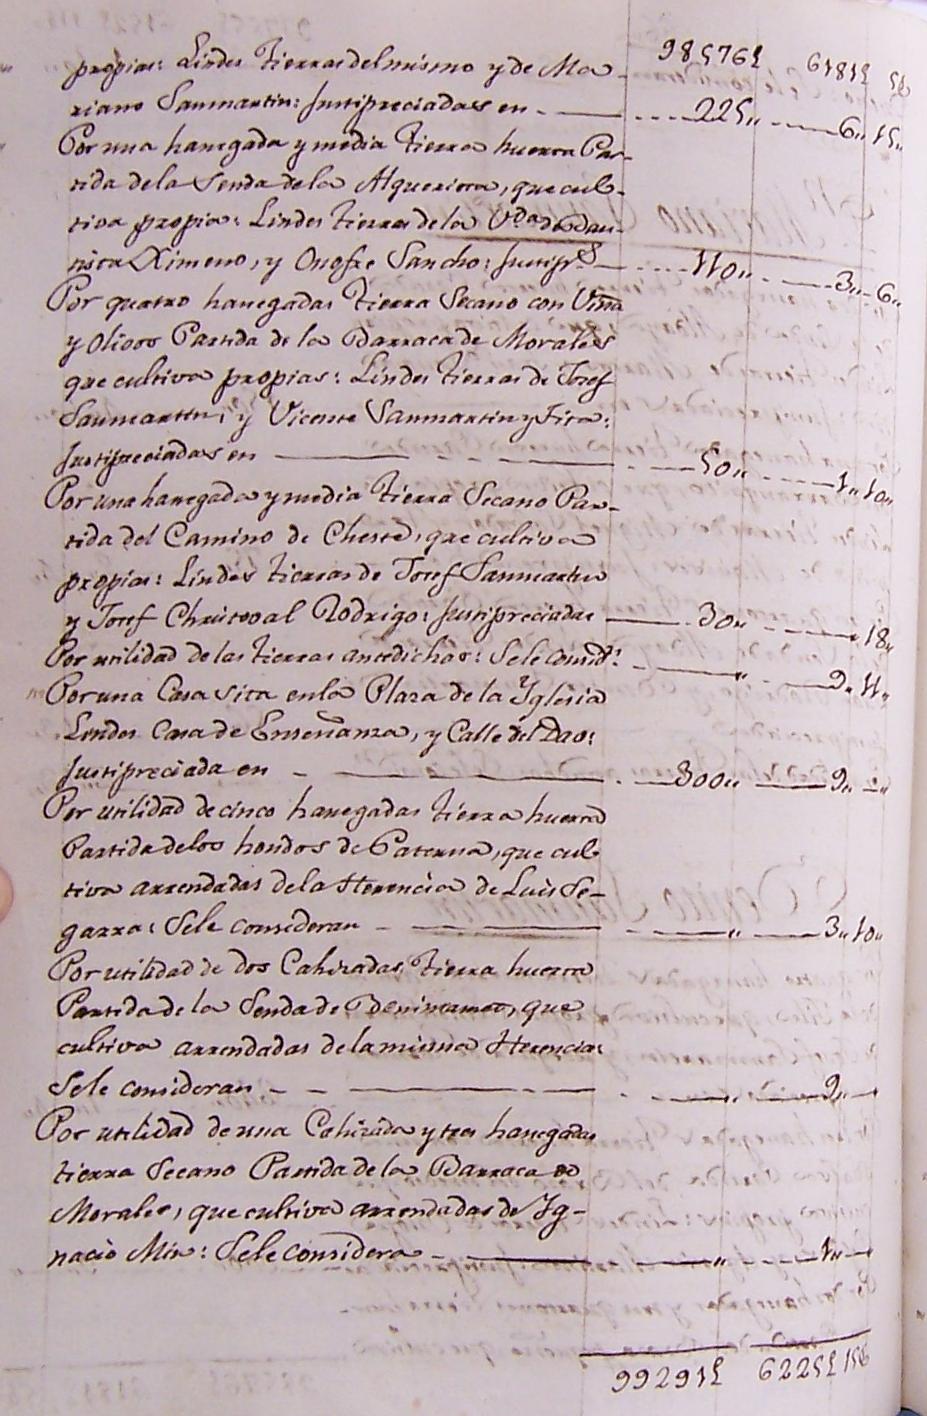 98576£ 6181£ 9
propias: Lindes Tierras del mismo y de Ma-
riano Sanmartin: Justipreciadas en - 225,, 6,, 15,,
Por una hanegada y media Tierra huerta Par-
tida de la Senda de la Alquerieta, que cul-
tiva propia: Lindes tierras de la V.da de Bau-
tista Ximeno, y Onofre Sancho: Justip.s - 110,, 3,, 6,,
Por quatro hanegadas Tierra Secano con Viña
y Olivos Partida de la Barraca de Morales
que cultiva propias: Lindes tierras de Josef
Sanmartin, y Vicente Sanmartin y Fita:
Justipreciadas en - 50,, 1,, 10,,
Por una hanegada y media Tierra Secano Par-
tida del Camino de Cheste, que cultiva
propias: Lindes tierras de Josef Sanmartin
y Josef Christoval Rodrigo: Justipreciadas - 30,, 18,,
Por utilidad de las tierras antedichas: Sele consid.n - ,, 2,, 11,,
Por una Casa sita en la Plaza de la Yglesia
Lindes Casa de Enseñanza, y Calle del
Justipreciada en - 300,, 9,, -,,
Por utilidad de cinco hanegadas tierra huerta
Partida de los hondos de Paterna, que cul-
tiva arrendadas de la Herencia de Luis Se-
garra: Sele consideran - ,, 3,, 10,,
Por utilidad de dos Cahizadas Tierra huerta
Partida de la Senda de Benimamet, que
cultiva arrendadas de la misma Herencia:
Sele consideran - ,, 9,, -
Por utilidad de una Cahizada y tres hanegadas
tierra Secano Partida de la Barraca de
Morales, que cultiva arrendadas de Yg-
nacio Mir: Sele considera - ,, 1,, -
99291£ 6225£ 15